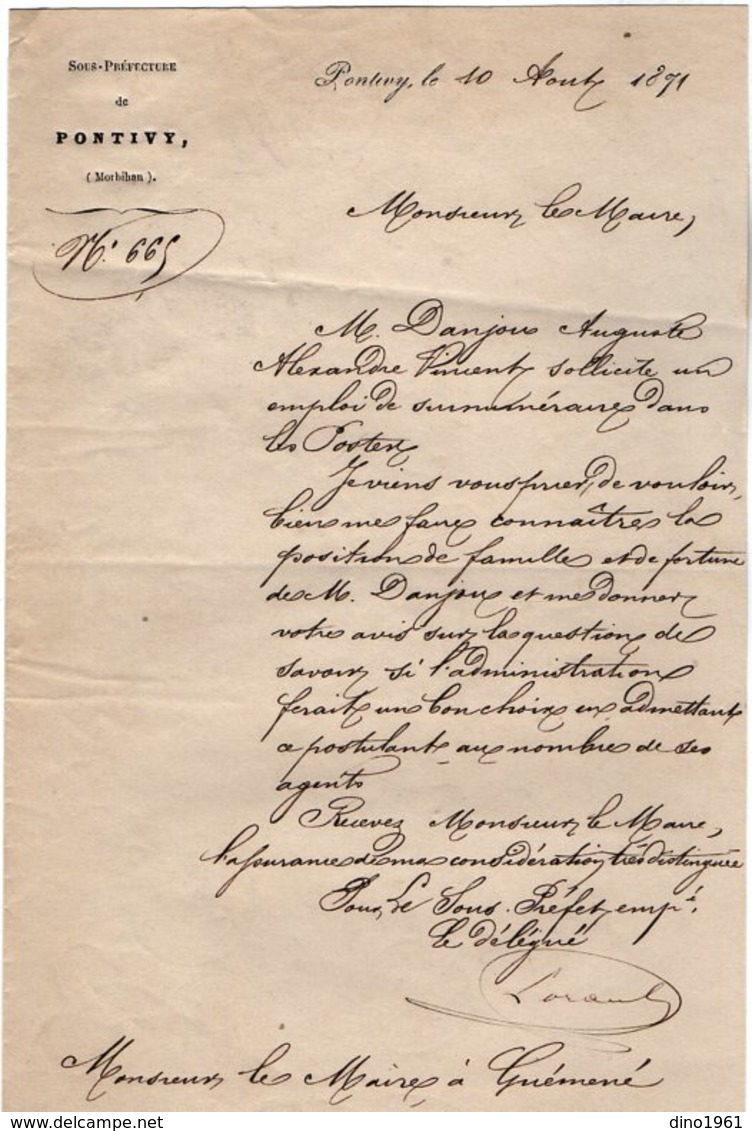 SOUS-PRÉFECTURE
de
PONTIVY,
(Morbihan).
N° 665
Pontivy, le 10 Août 1871
Monsieur le Maire,
M. Danjou Auguste
Alexandre Vincent sollicite un
emploi de surnuméraire dans
les Postes
Je viens vous prier de vouloir
bien me faire connaître la
position de famille et de fortune
de M. Danjou et me donner
votre avis sur la question de
savoir si l'administration
ferait un bon choix en admettant
ce postulant au nombre de ses
agents
Recevez Monsieur le Maire,
l'assurance de ma considération très distinguée
Pour Le Sous-Préfet, emp.é
Le délégué
Monsieur le Maire à Guémené
dino1961